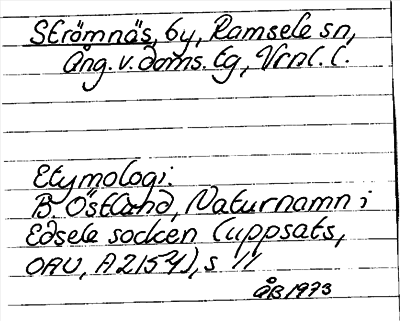 Strömnäs, by, Ramsele sn,
Ång. v. doms. tg, Vrnl. l.
Etymologi:
B. Östlund, Naturnamn i
Edsele socken (uppsats,
OAU, A 2154), s 11
ÅB 1973